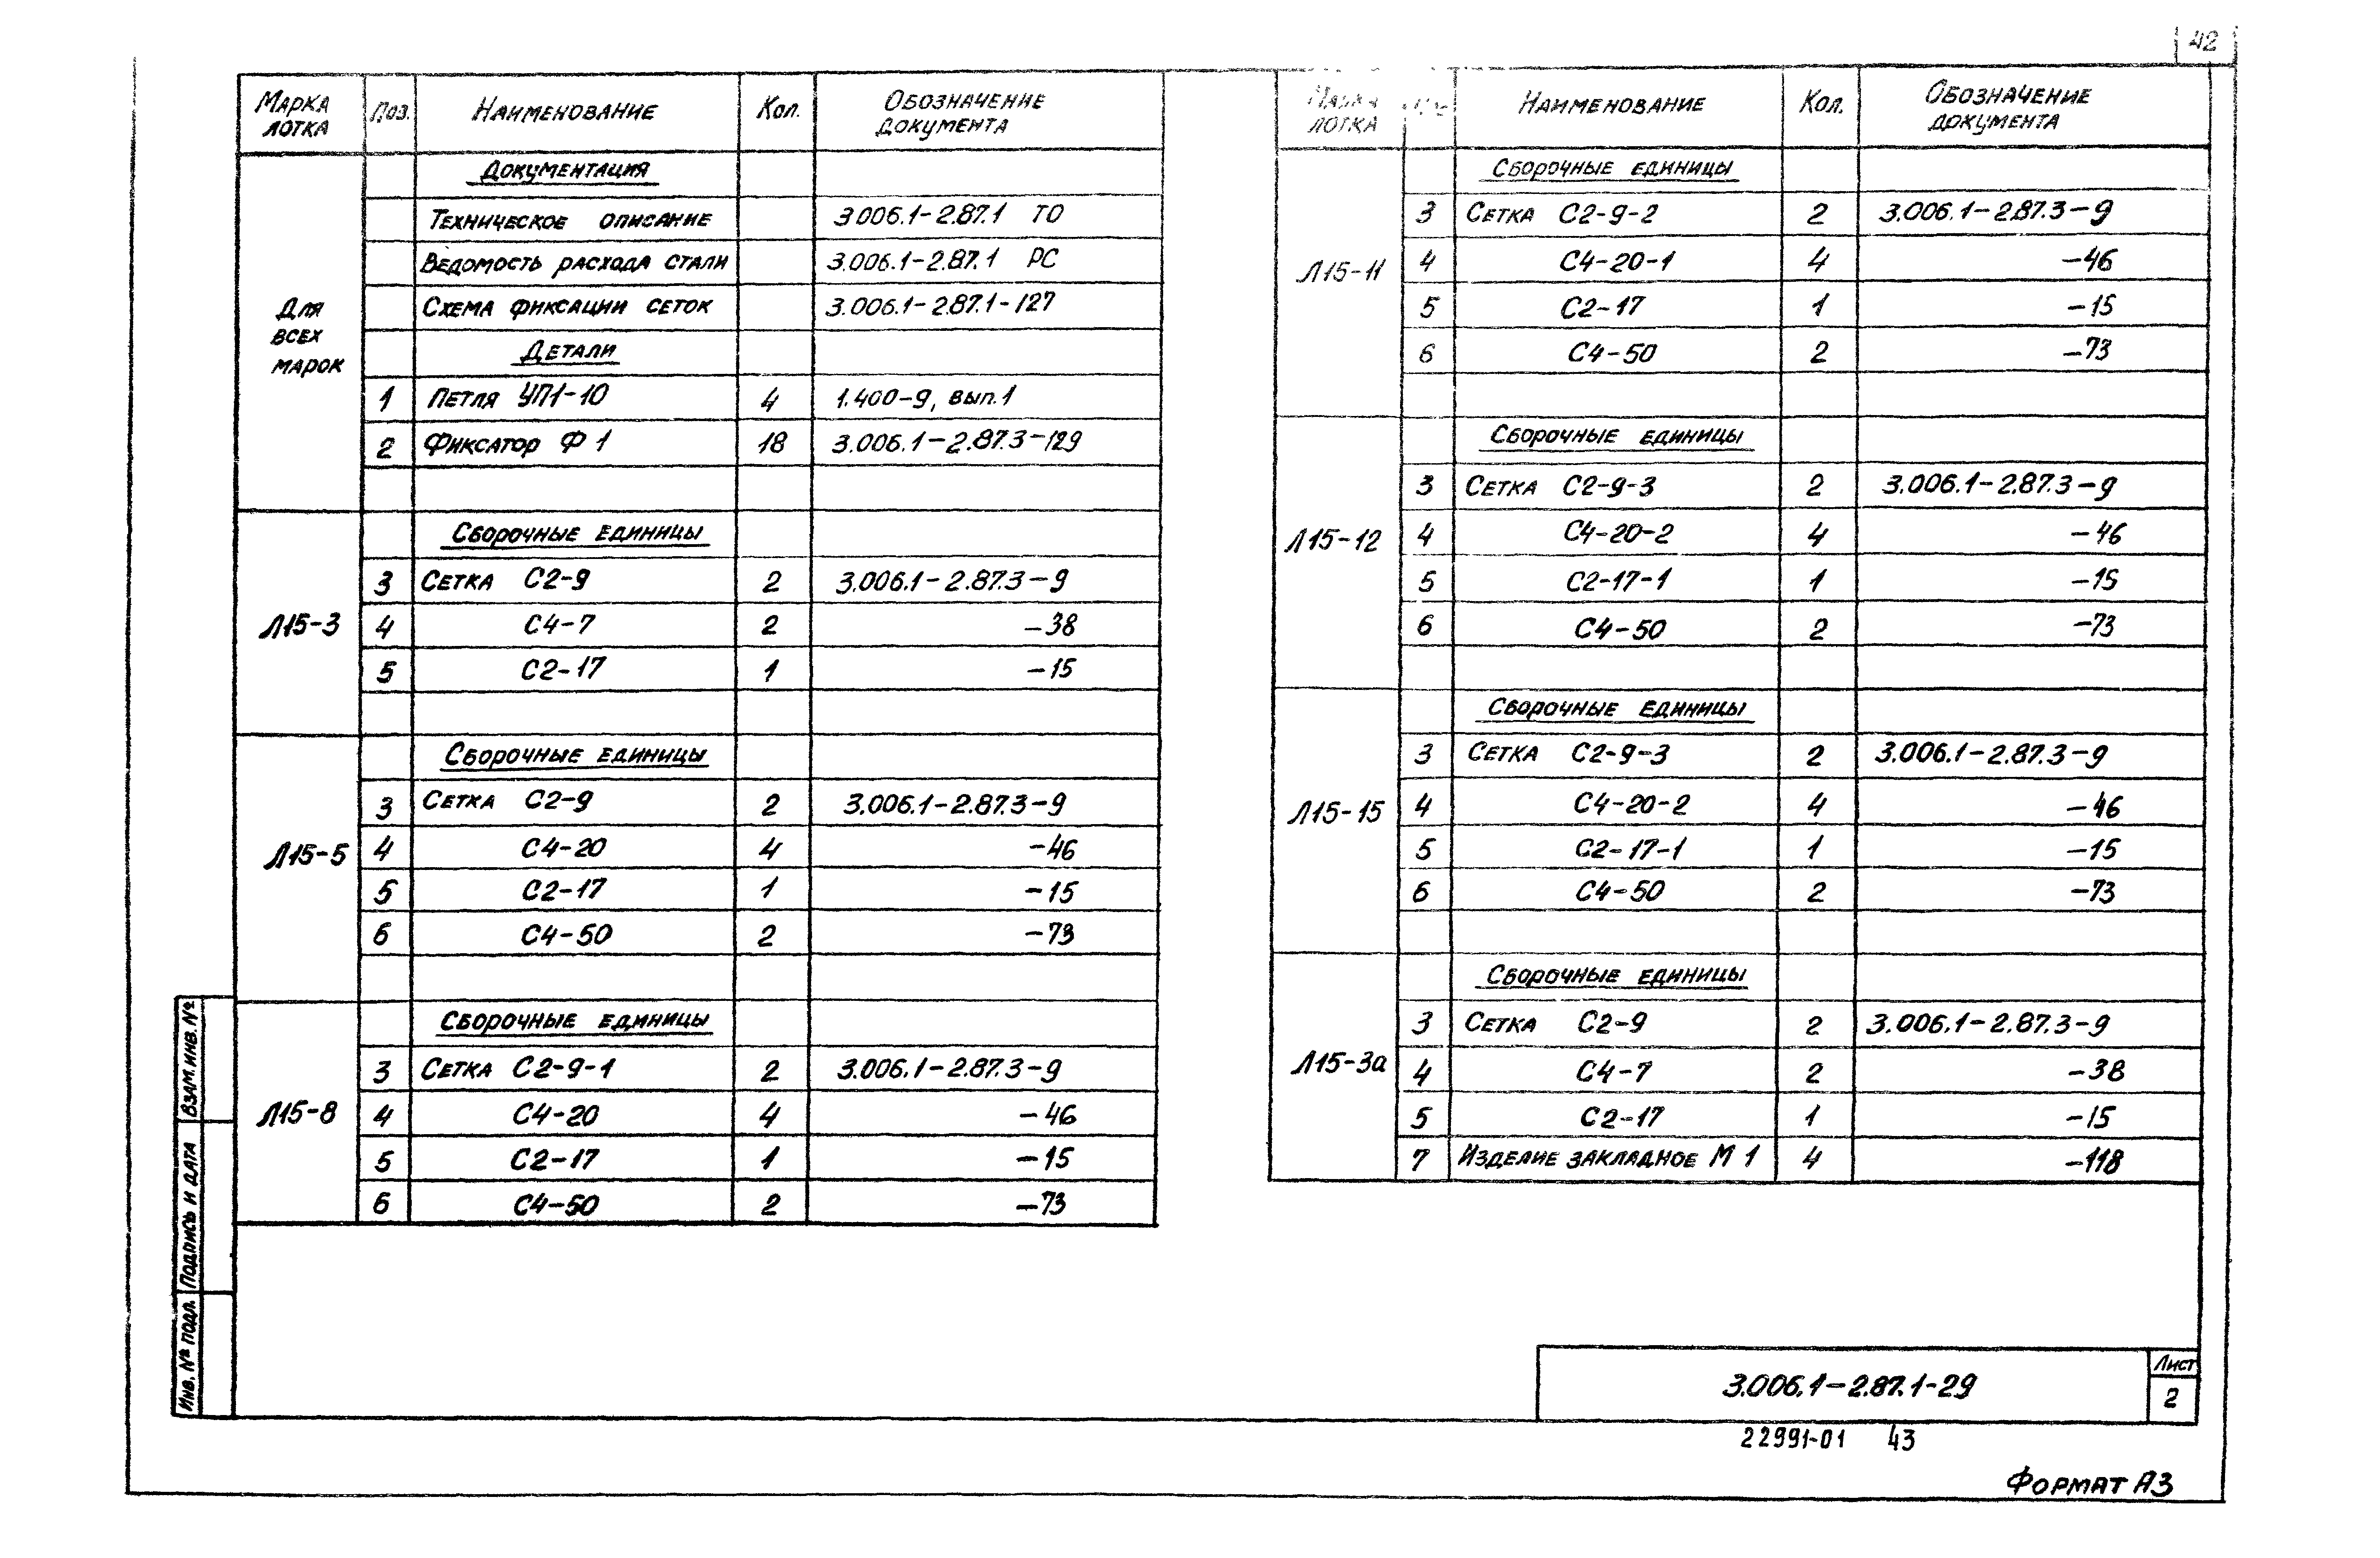 42
Марка лотка Поз. Наименование Кол. Обозначение документа
Для всех марок
Документация
Техническое описание 3.006.1-2.87.1 ТО
Ведомость расхода стали 3.006.1-2.87.1 РС
Схема фиксации сеток 3.006.1-2.87.1-127
Детали
1 Петля УП1-10 4 1.400-9, вып.1
2 Фиксатор Ф1 18 3.006.1-2.87.3-129
Л15-3
Сборочные единицы
3 Сетка С2-9 2 3.006.1-2.87.3-9
4 С4-7 2 -38
5 С2-17 1 -15
Л15-5
Сборочные единицы
3 Сетка С2-9 2 3.006.1-2.87.3-9
4 С4-20 4 -46
5 С2-17 1 -15
6 С4-50 2 -73
Л15-8
Сборочные единицы
3 Сетка С2-9-1 2 3.006.1-2.87.3-9
4 С4-20 4 -46
5 С2-17 1 -15
6 С4-50 2 -73
Марка лотка Наименование Кол. Обозначение документа
Л15-11
Сборочные единицы
3 Сетка С2-9-2 2 3.006.1-2.87.3-9
4 С4-20-1 4 -46
5 С2-17 1 -15
6 С4-50 2 -73
Л15-12
Сборочные единицы
3 Сетка С2-9-3 2 3.006.1-2.87.3-9
4 С4-20-2 4 -46
5 С2-17-1 1 -15
6 С4-50 2 -73
Л15-15
Сборочные единицы
3 Сетка С2-9-3 2 3.006.1-2.87.3-9
4 С4-20-2 4 -46
5 С2-17-1 1 -15
6 С4-50 2 -73
Л15-3а
Сборочные единицы
3 Сетка С2-9 2 3.006.1-2.87.3-9
4 С4-7 2 -38
5 С2-17 1 -15
7 Изделие закладное М1 4 -118
Взам. инв. №
Подпись и дата
Инв. № подл.
3.006.1-2.87.1-29
Лист
2
22991-01 43
Формат А3